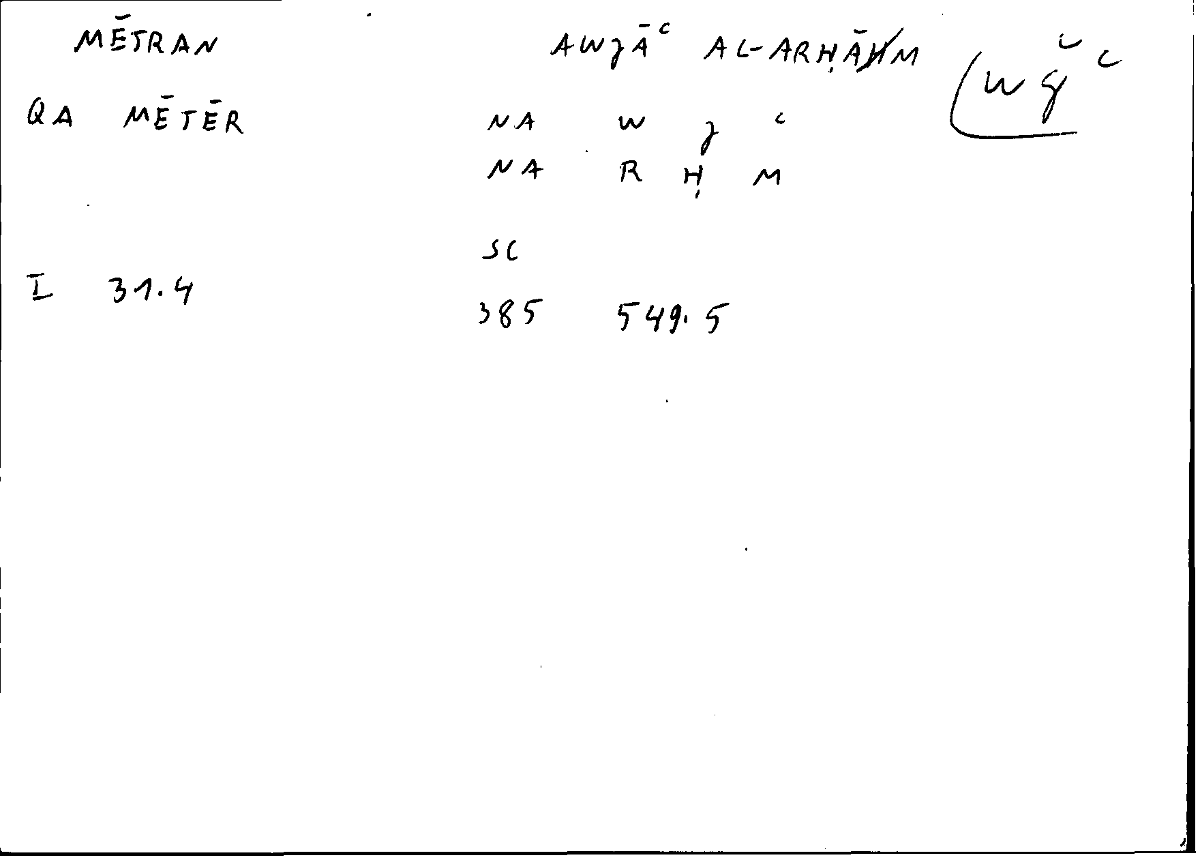 MĒTRAN AWȷĀʿ AL-ARḤĀM wǧʿ
QA MĒTĒR NA W ȷ ʿ
NA R Ḥ M
SC
I 31.4 385 549.5